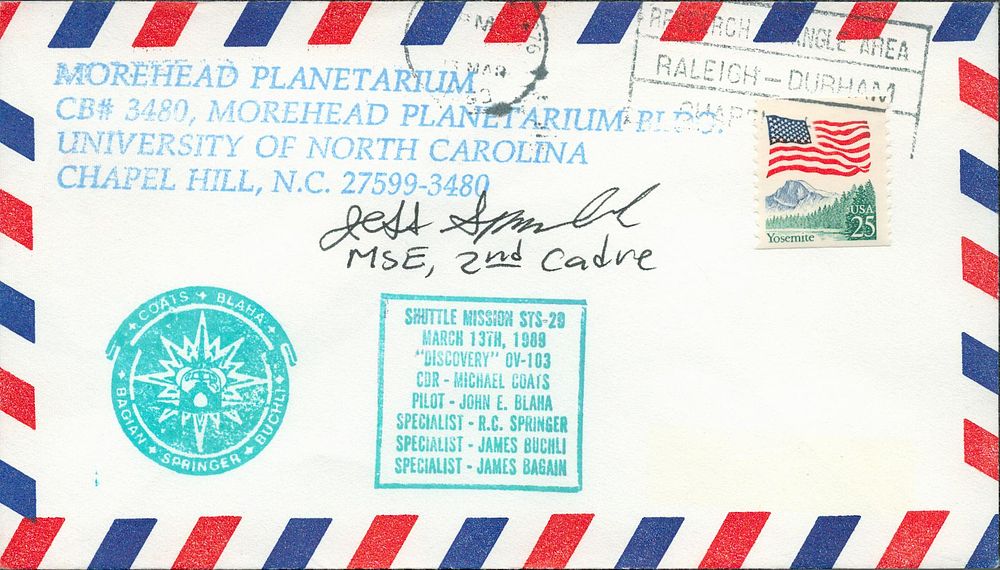 13 MAR
RESEARCH TRIANGLE AREA
RALEIGH - DURHAM
MOREHEAD PLANETARIUM
CB# 3480, MOREHEAD PLANETARIUM BLDG.
UNIVERSITY OF NORTH CAROLINA
CHAPEL HILL, N.C. 27599-3480
USA
25
Yosemite
MSE, 2nd Cadre
COATS BLAHA
BUCHLI SPRINGER BAGIAN
SHUTTLE MISSION STS-29
MARCH 13TH, 1989
"DISCOVERY" OV-103
CDR - MICHAEL COATS
PILOT - JOHN E. BLAHA
SPECIALIST - R.C. SPRINGER
SPECIALIST - JAMES BUCHLI
SPECIALIST - JAMES BAGAIN